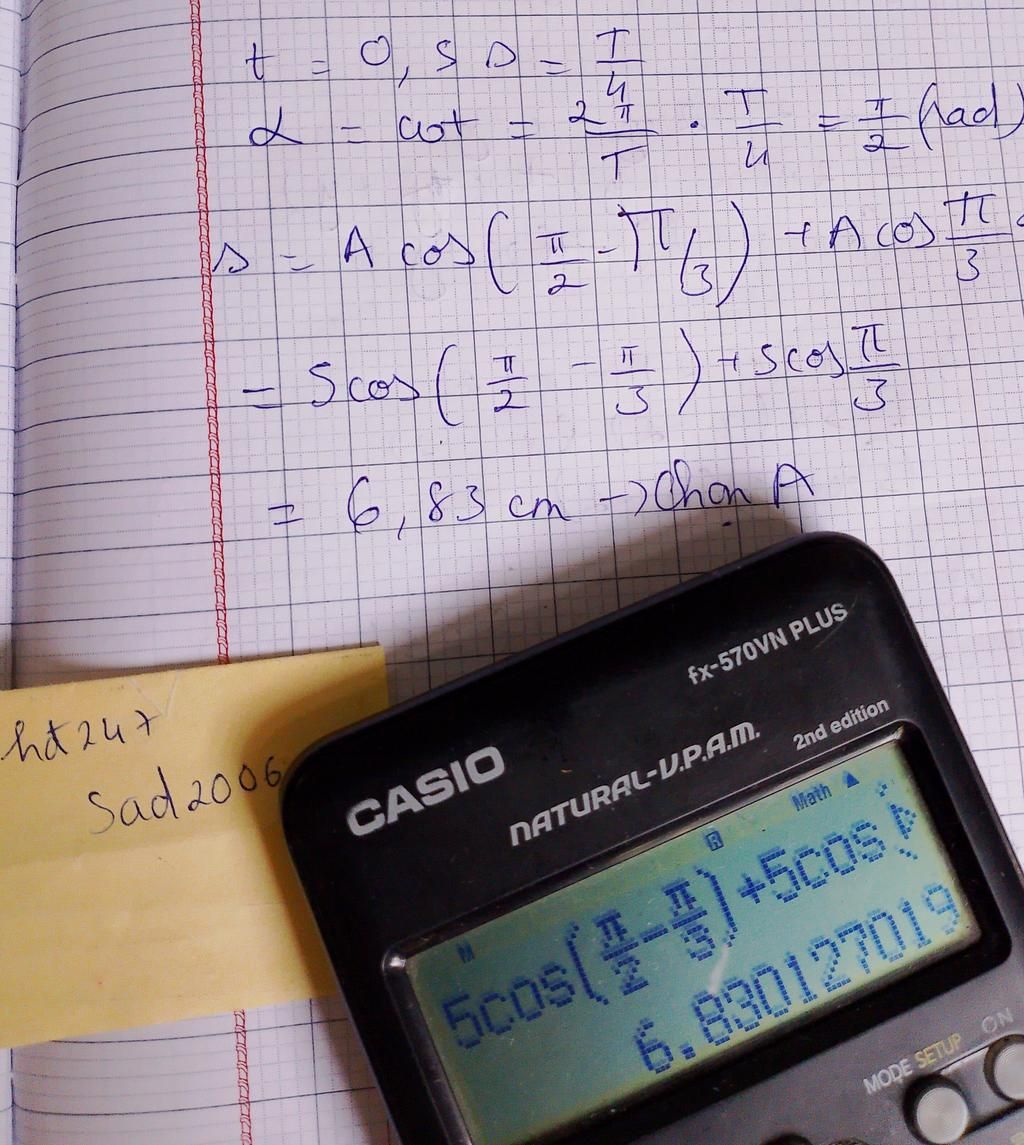 t = 0,5 s = T/4
α = ωt = 2π/T . T/4 = π/2 (rad)
s = A cos(π/2 - π/3) + A cos π/3
= 5cos(π/2 - π/3) + 5cos π/3
= 6,83 cm → Chọn A
fx-570VN PLUS
CASIO
NATURAL-V.P.A.M.
2nd edition
Sad2006
M R Math ▲
5cos(π/2-π/3)+5cos(
6.830127019
MODE SETUP ON